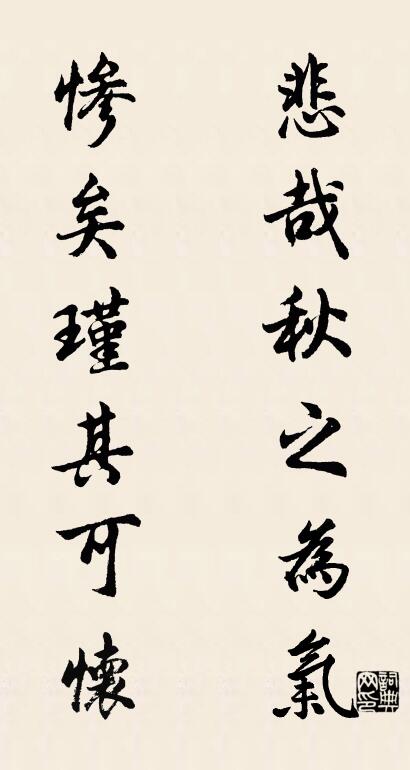 悲哉秋之為氣
惨矣瑾其可懷
詞典网印